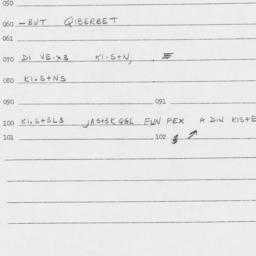 050
060 -BUT QIBERBET
061
070 DI VE.X3 KI.S+N,
080 KI.S+NS
090 091
100 KI.S+SL3 JAS+3KQSL FUN PEX A DIN KIS+E
101 102